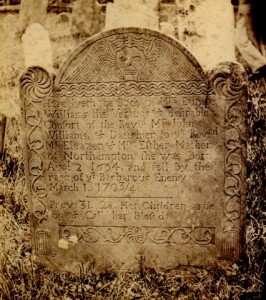 Here lyeth the Body of Mrs Eunice
Williams the Vertuous & desirable
Consort of the Revd Mr John
Williams, & Daughter to ye Revrd
Mr Eleazer & Mrs Esther Mather
of Northampton She was Born
Augt 2 1664 and fell by the
rage of ye Barbarous Enemy
March 1. 1703/4
Prov 31. 28 Her Children arise
up & Call her Blessed